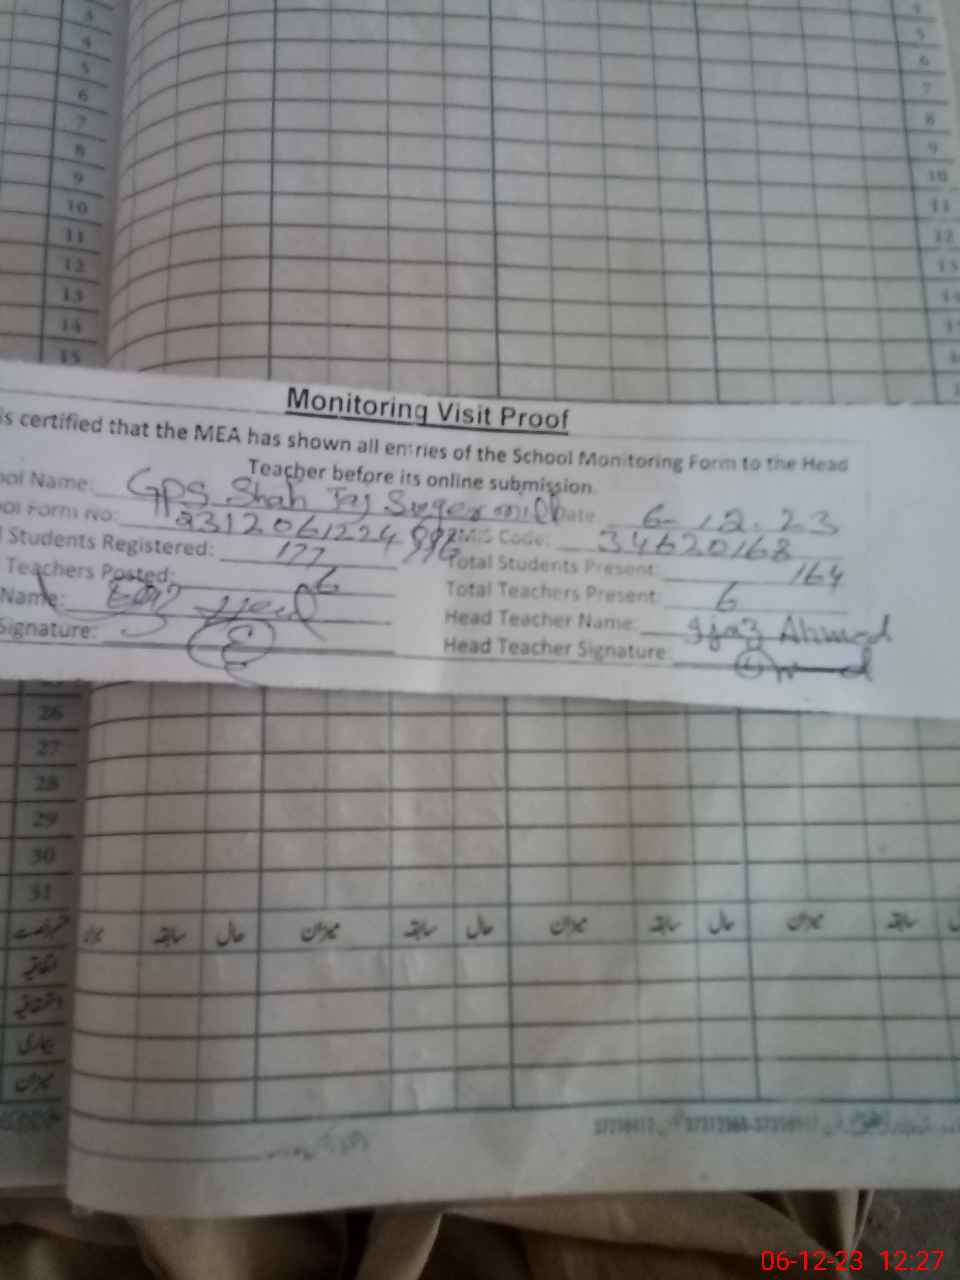 3
4 4
5 5
6 6
7 7
8 8
9 9
10 10
11 11
12 12
13 13
14 14
15
Monitoring Visit Proof
is certified that the MEA has shown all entries of the School Monitoring Form to the Head
Teacher before its online submission.
ool Name: GPS Shah Taj Suger mill Date 6-12.23
ool Form No: 2312061224996 EMIS Code: 34620168
l Students Registered: 177 Total Students Present: 164
Teachers Posted: 6 Total Teachers Present: 6
Name: Head Teacher Name: Ijaz Ahmed
Signature: Head Teacher Signature:
26
27
28
29
30
31
میزان سابقہ حال میزان سابقہ حال میزان سابقہ حال میزان سابقہ
اتفاقیہ
بیماری
میزان
06-12-23 12:27